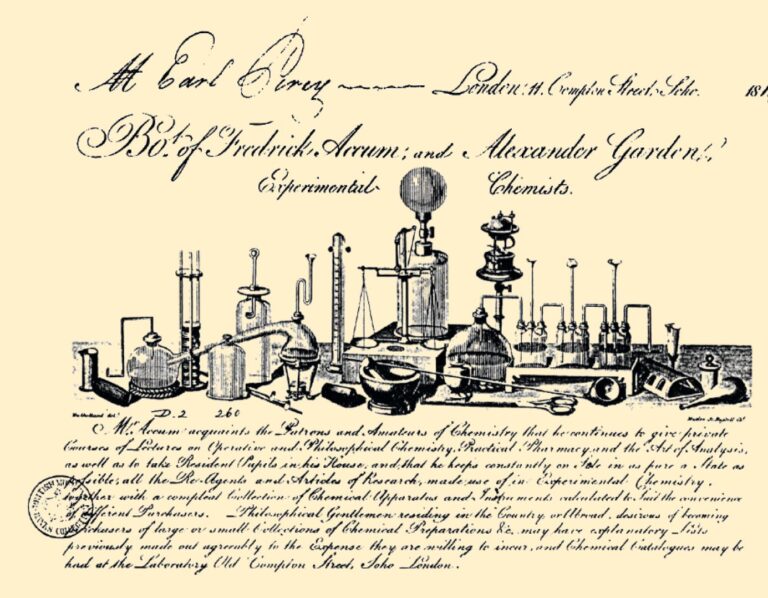 Mr Earl Percy London: 11. Compton Street, Soho. 181
Bot. of Fredrick Accum; and Alexander Garden;
Experimental Chemists.
D.2 260
Mr. Accum acquaints the Patrons and Amateurs of Chemistry that he continues to give private
Courses of Lectures on Operative and Philosophical Chemistry, Practical Pharmacy and the Art of Analysis,
as well as to take Resident Pupils in his House, and that he keeps constantly on Sale in as pure a State as
possible, all the Re-Agents and Articles of Research, made use of in Experimental Chemistry,
together with a compleat Collection of Chemical Apparatus and Instruments calculated to suit the convenience
of different Purchasers. Philosophical Gentlemen residing in the Country or Abroad, desirous of becoming
Purchasers of large or small Collections of Chemical Preparations &c. may have explanatory Lists
previously made out agreeably to the Expense they are willing to incur, and Chemical Catalogues may be
had at the Laboratory Old Compton Street, Soho London.